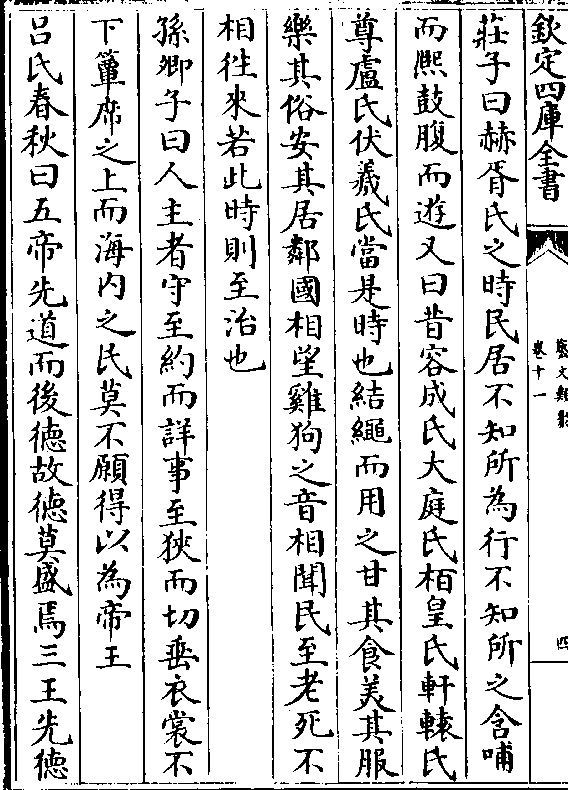 欽定四庫全書
藝文類聚
卷十一
四
莊子曰赫胥氏之時民居不知所為行不知所之含哺
而熈鼓腹而遊又曰昔容成氏大庭氏栢皇氏軒轅氏
尊盧氏伏羲氏當是時也結繩而用之甘其食美其服
樂其俗安其居鄰國相望雞狗之音相聞民至老死不
相徃來若此時則至治也
孫卿子曰人主者守至約而詳事至狹而切垂衣裳不
下簟席之上而海内之民莫不願得以為帝王
吕氏春秋曰五帝先道而後徳故徳莫盛焉三王先徳